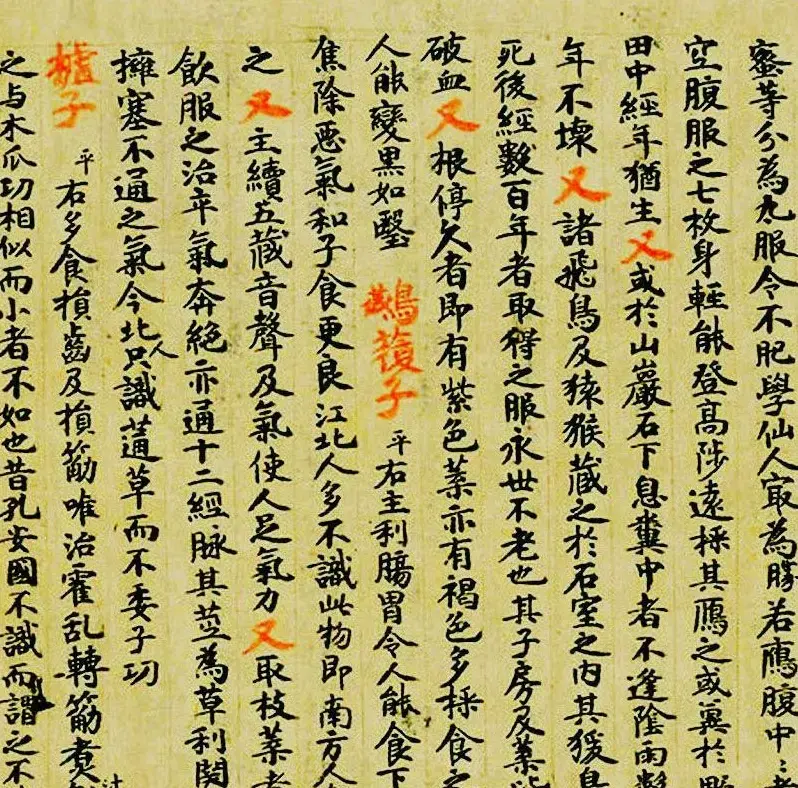 蜜等分為丸服令不肥學仙人冣為勝若鴈腹中〻者
空腹服之七枚身輕能登高陟遠採其鴈之或糞於野
田中經年猶生又或於山巖石下息糞中者不逢陰雨數
年不壞又諸飛鳥及猿猴藏之於石室之內其猨鳥
死後經數百年者取得之服永世不老也其子房及葉皆
破血又根停久者即有紫色葉亦有褐色多採食之
人能變黑如瑿 鷰蕧子 平右主利腸胃令人能食下
焦除惡氣和子食更良江北人多不識此物即南方人
之又主續五藏音聲及氣使人足氣力又取枝葉煮
飲服之治卒氣奔絕亦通十二經脉其莖為草利関
擁塞不通之氣今北人只識蓪草而不委子功
樝子 平右多食損齒及損筋唯治霍乱轉筋煮
之与木瓜功相似而小者不如也昔孔安國不識而謂之不